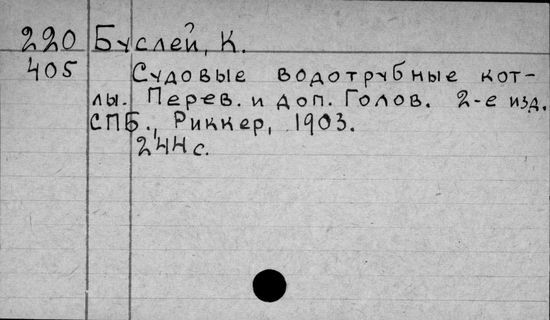 220 Буслей, К.
405 Судовые водотрубные кот-
лы. Перев. и доп. Голов. 2-е изд.
СПБ., Риккер, 1903.
244 с.